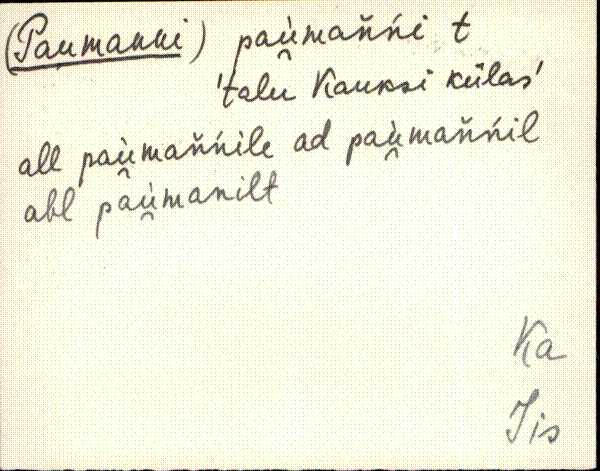 (Paumanni) paù̯maňńi t
'talu Kauksi külas'
all paù̯maňńile ad paù̯maňńil
abl paù̯manilt
Ka
Jis